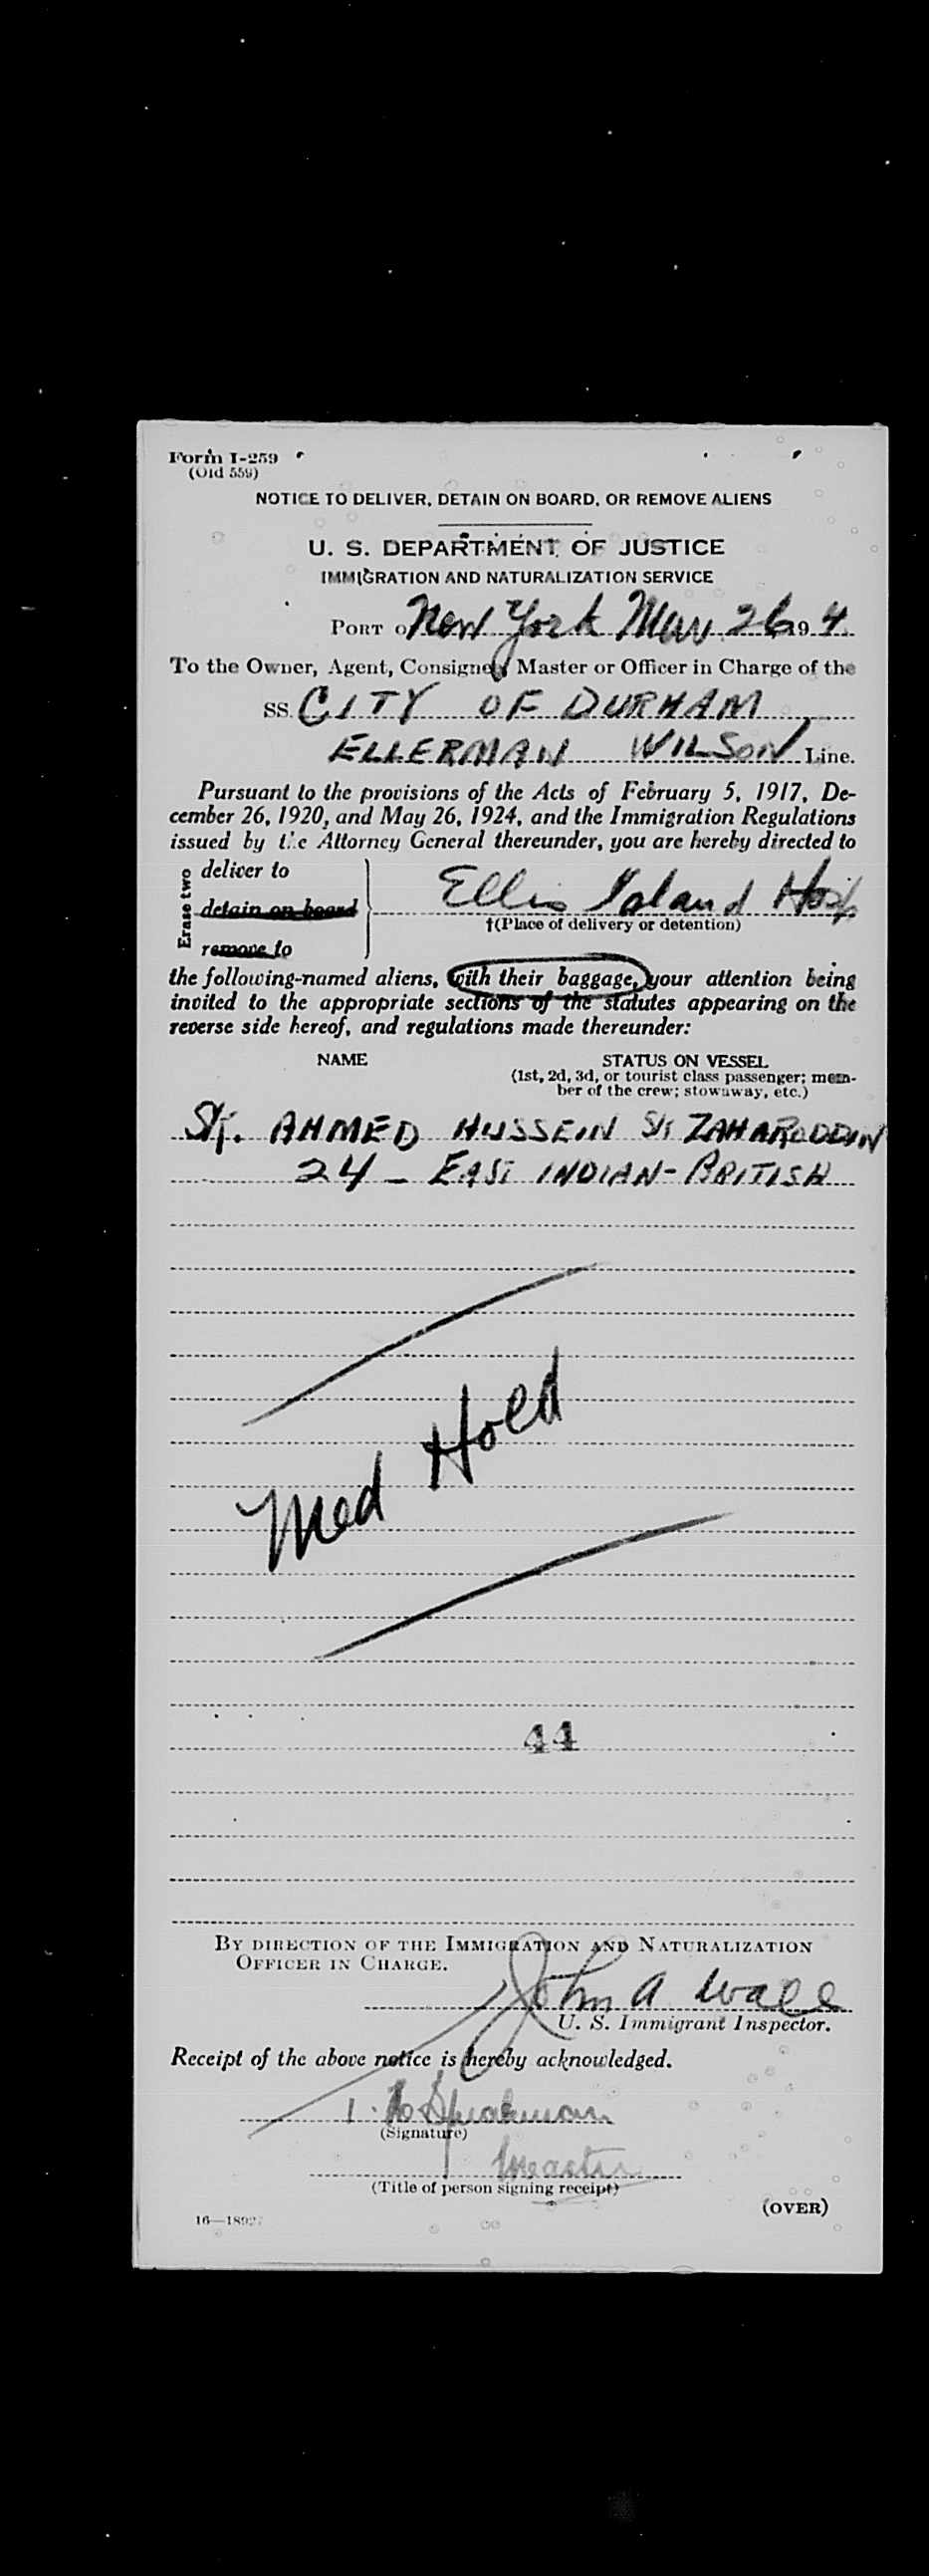 Form I-259
(Old 559)
NOTICE TO DELIVER, DETAIN ON BOARD, OR REMOVE ALIENS
U. S. DEPARTMENT OF JUSTICE
IMMIGRATION AND NATURALIZATION SERVICE
PORT of New York 26 19 4
To the Owner, Agent, Consignee, Master or Officer in Charge of the
SS. CITY OF DURHAM
ELLERMAN WILSON Line.
Pursuant to the provisions of the Acts of February 5, 1917, De-
cember 26, 1920, and May 26, 1924, and the Immigration Regulations
issued by the Attorney General thereunder, you are hereby directed to
Erase two
deliver to
detain on board
remove to
Ellis Island Hosp
†(Place of delivery or detention)
the following-named aliens, with their baggage, your attention being
invited to the appropriate sections of the statutes appearing on the
reverse side hereof, and regulations made thereunder:
NAME STATUS ON VESSEL
(1st, 2d, 3d, or tourist class passenger; mem-
ber of the crew; stowaway, etc.)
SK. AHMED HUSSEIN SK ZAHARODDIN
24 - EAST INDIAN - BRITISH
Med Hold
44
BY DIRECTION OF THE IMMIGRATION AND NATURALIZATION
OFFICER IN CHARGE.
John A Wall
U. S. Immigrant Inspector.
Receipt of the above notice is hereby acknowledged.
(Signature)
Master
(Title of person signing receipt)
(OVER)